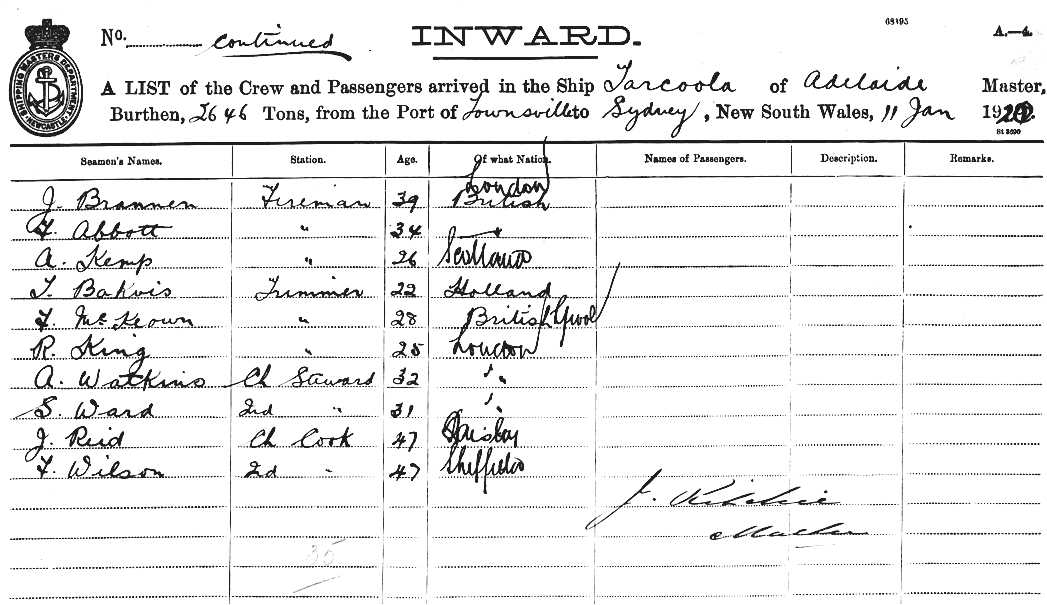 No. continued INWARD. 68195 A.—4.
SHIPPING MASTERS DEPARTMENT NEWCASTLE
A LIST of the Crew and Passengers arrived in the Ship Tarcoola of Adelaide Master,
Burthen, 2646 Tons, from the Port of Townsville to Sydney, New South Wales, 11 Jan 192
St 3690
Seamen's Names. Station. Age. Of what Nation. Names of Passengers. Description. Remarks.
London
J. Brannen Fireman 39 British
Abbott " 34 "
A. Kemp " 26 Scotland
T. Bakvis Trimmer 22 Holland
F. McKeown " 28 British L'pool
R. King " 25 London
A. Watkins Ch Steward 32 "
S. Ward 2nd " 31 "
J. Reid Ch Cook 47
F. Wilson 2nd " 47 Sheffield
J. Ritchie
Master
35